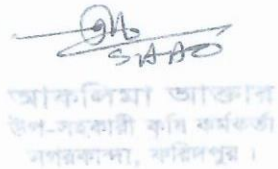 SAAO
আকলিমা আক্তার
উপ-সহকারী কৃষি কর্মকর্তা
নগরকান্দা, ফরিদপুর।